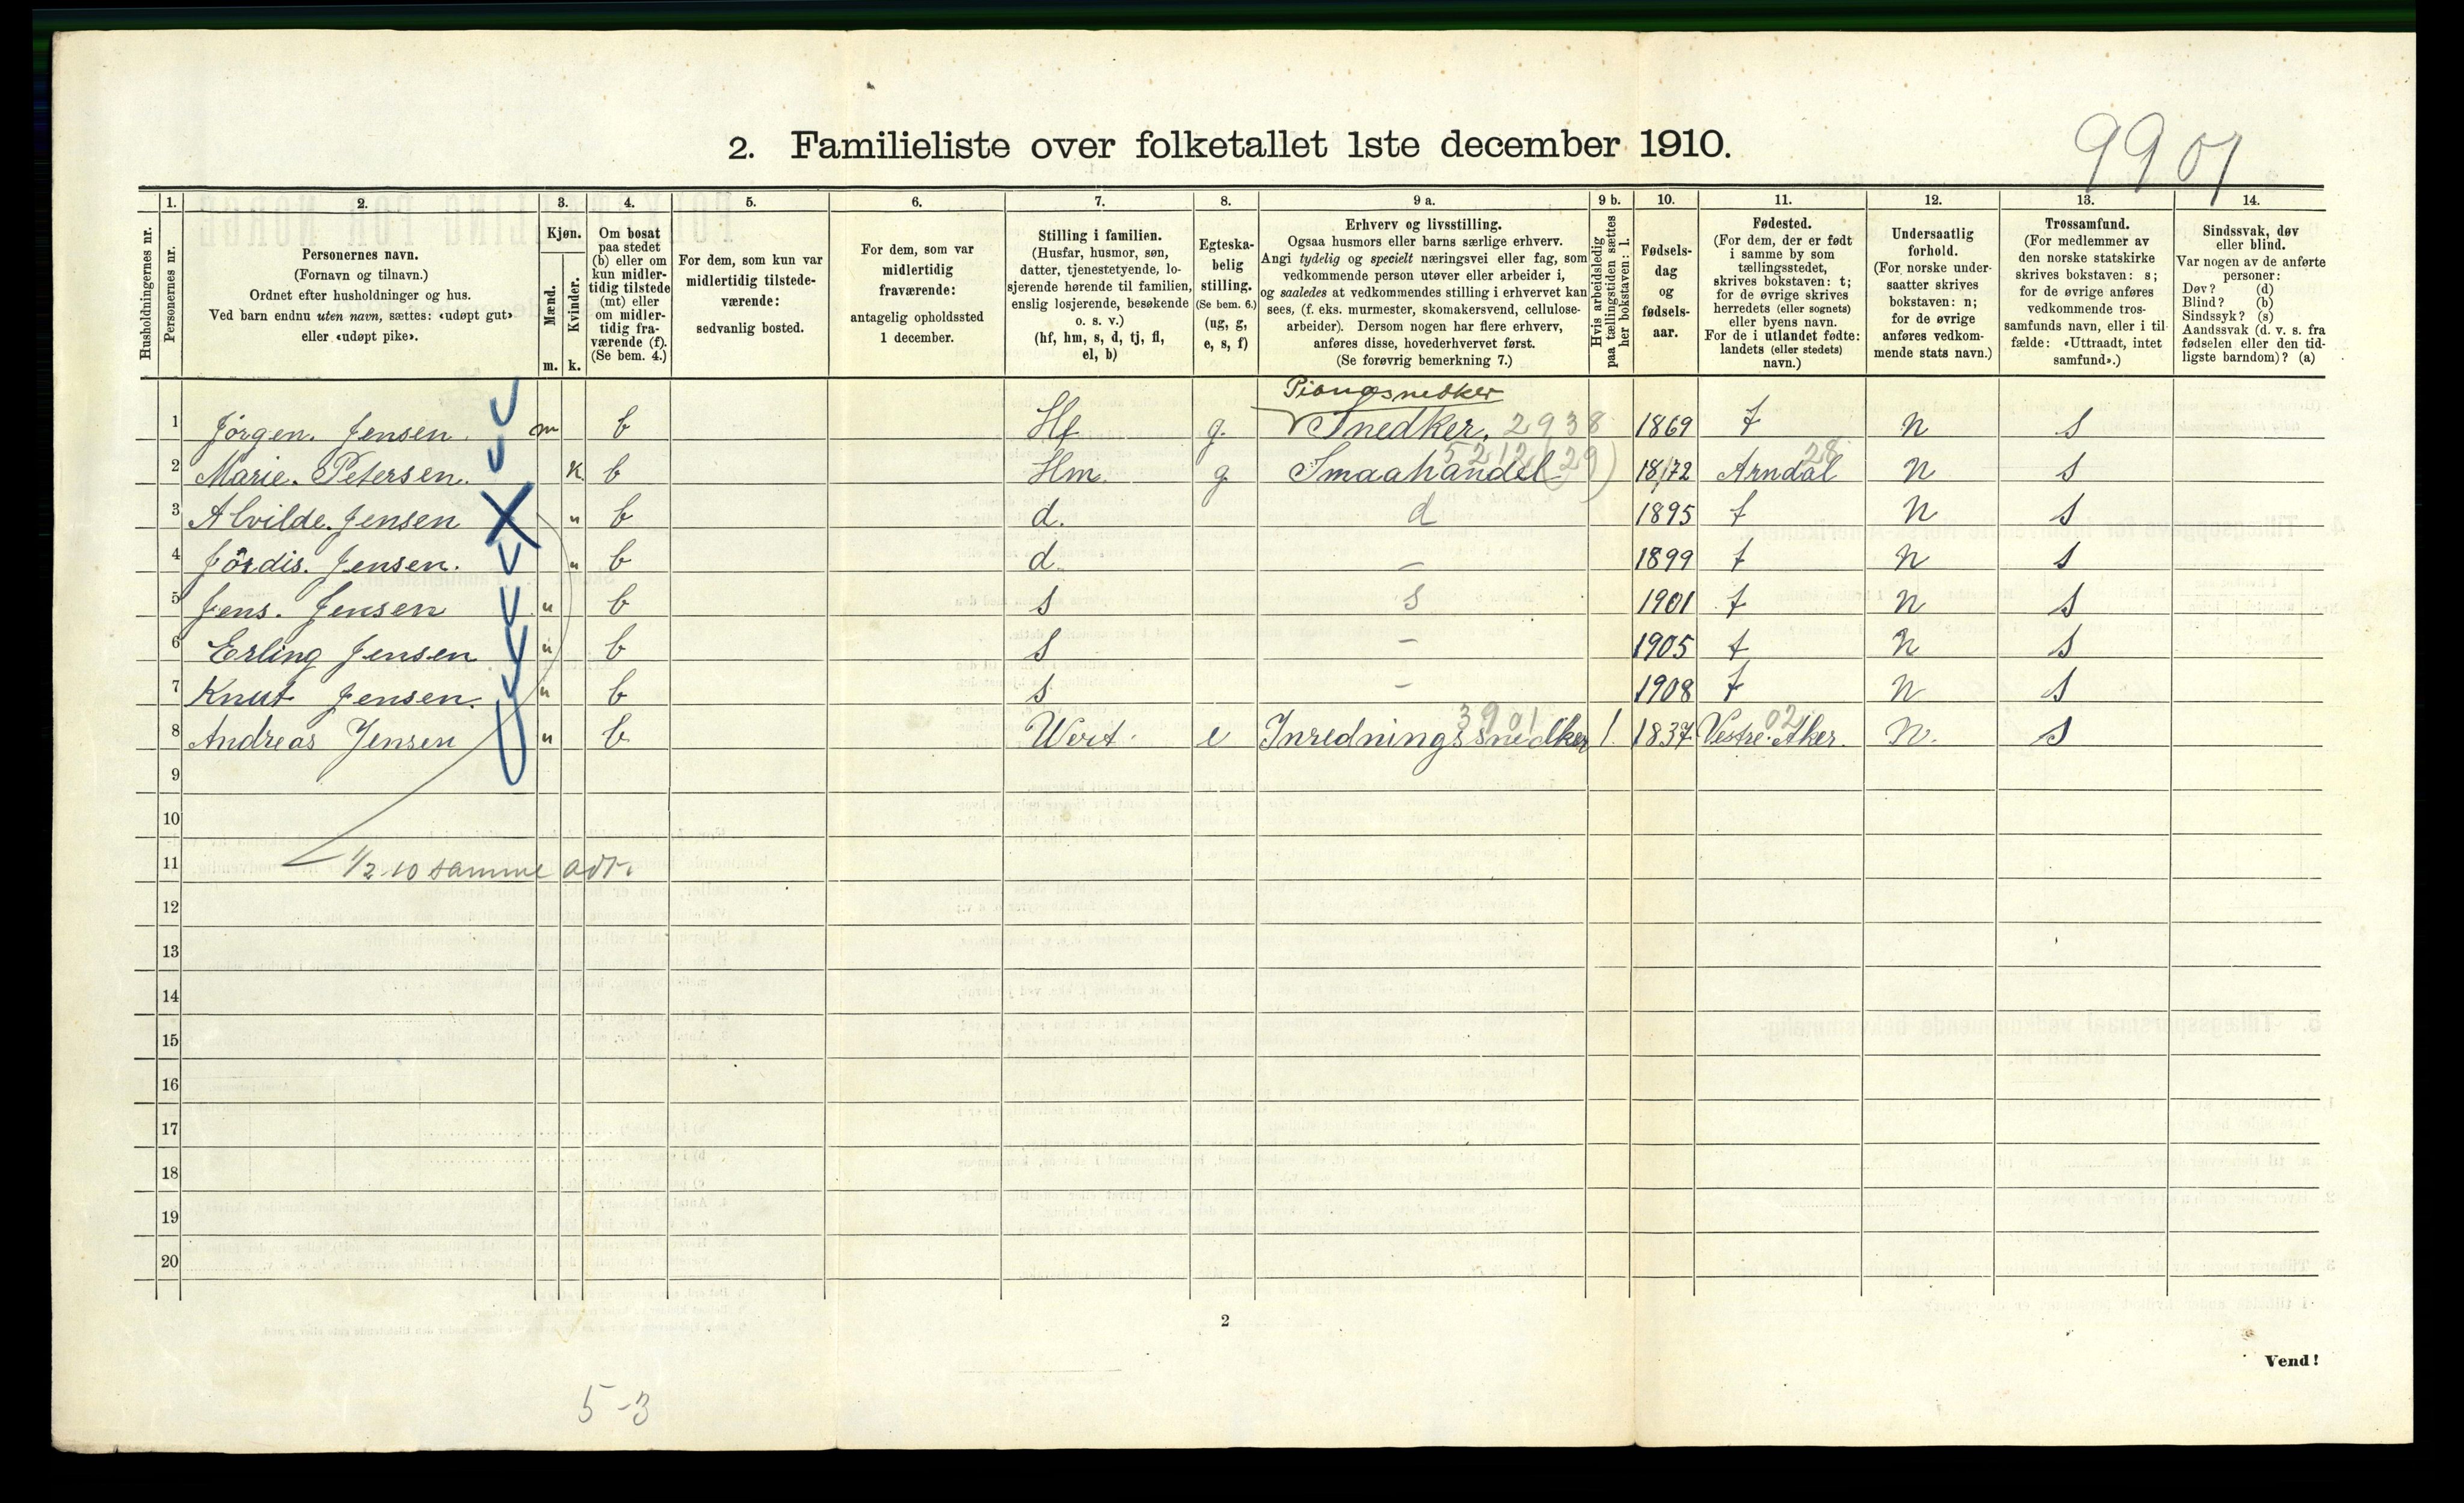 9901
2. Familieliste over folketallet 1ste december 1910.
Husholdningernes nr.
1. Personernes nr.
2. Personernes navn. (Fornavn og tilnavn.) Ordnet efter husholdninger og hus. Ved barn endnu uten navn, sættes: «udøpt gut» eller «udøpt pike».
3. Kjøn. Mænd. m. Kvinder. k.
4. Om bosat paa stedet (b) eller om kun midlertidig tilstede (mt) eller om midlertidig fraværende (f). (Se bem. 4.)
5. For dem, som kun var midlertidig tilstedeværende: sedvanlig bosted.
6. For dem, som var midlertidig fraværende: antagelig opholdssted 1 december.
7. Stilling i familien. (Husfar, husmor, søn, datter, tjenestetyende, losjerende hørende til familien, enslig losjerende, besøkende o. s. v.) (hf, hm, s, d, tj, fl, el, b)
8. Egteskabelig stilling. (Se bem. 6.) (ug, g, e, s, f)
9 a. Erhverv og livsstilling. Ogsaa husmors eller barns særlige erhverv. Angi tydelig og specielt næringsvei eller fag, som vedkommende person utøver eller arbeider i, og saaledes at vedkommendes stilling i erhvervet kan sees, (f. eks. murmester, skomakersvend, cellulosearbeider). Dersom nogen har flere erhverv, anføres disse, hovederhvervet først. (Se forøvrig bemerkning 7.)
9 b. Hvis arbeidsledig paa tællingstiden sættes her bokstaven: l.
10. Fødselsdag og fødselsaar.
11. Fødested. (For dem, der er født i samme by som tællingsstedet, skrives bokstaven: t; for de øvrige skrives herredets (eller sognets) eller byens navn. For de i utlandet fødte: landets (eller stedets) navn.)
12. Undersaatlig forhold. (For norske undersaatter skrives bokstaven: n; for de øvrige anføres vedkommende stats navn.)
13. Trossamfund. (For medlemmer av den norske statskirke skrives bokstaven: s; for de øvrige anføres vedkommende trossamfunds navn, eller i tilfælde: «Uttraadt, intet samfund».)
14. Sindssvak, døv eller blind. Var nogen av de anførte personer: Døv? (d) Blind? (b) Sindssyk? (s) Aandssvak (d. v. s. fra fødselen eller den tidligste barndom)? (a)
Pianosnedker
1 Jørgen. Jensen. m b Hf g. Snedker. 2938 1869 t n s
5212 (29) 28
2 Marie. Petersen. k b Hm. g Smaahandel 1872 Arndal n s
3 Alvilde. Jensen " b d. d 1895 t n s
4 Jördis. Jensen. " b d. – 1899 t n s
5 Jens. Jensen " b s s 1901 t n s
6 Erling Jensen " b s – 1905 t n s
7 Knut Jensen. " b s – 1908 t n s
3901 02
8 Andreas Jensen " b Wert. e Inredningssnedker l. 1837 Vestre. Aker. n. s
9
10
11 1/2 10 samme adr.
12
13
14
15
16
17
18
19
20
2
Vend!
5-3